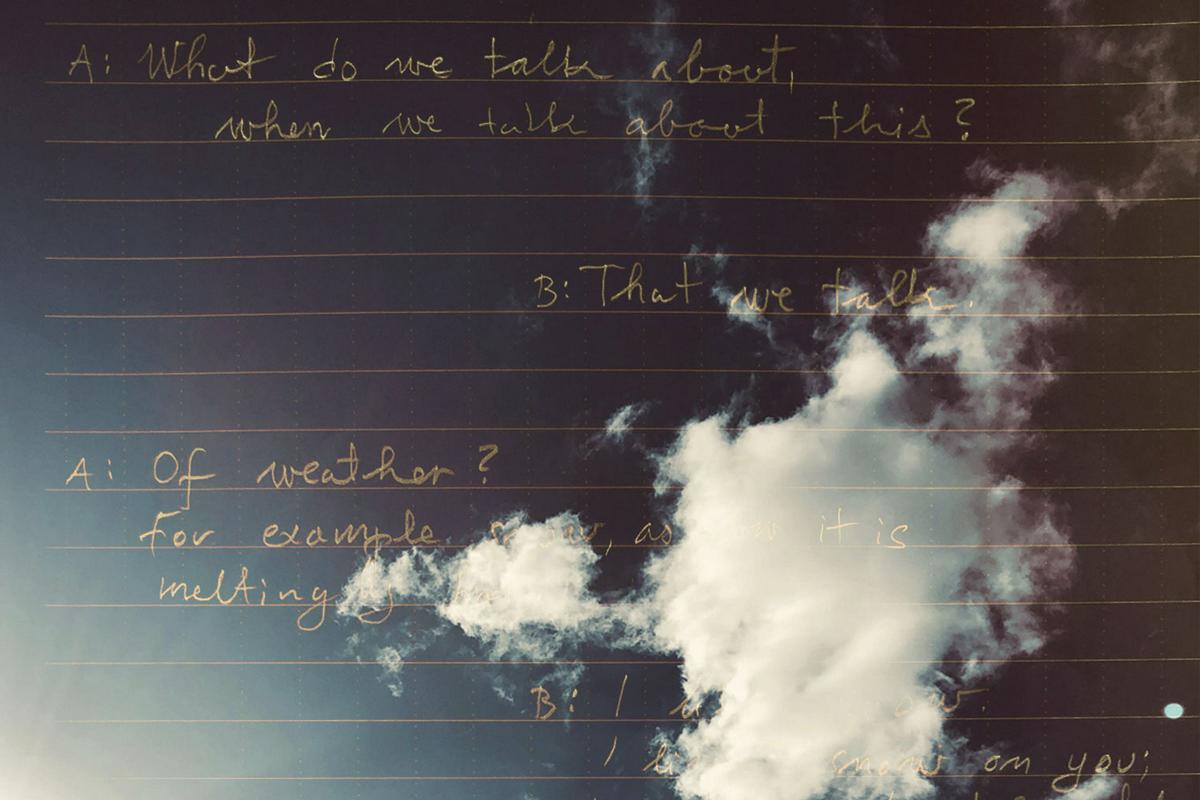 A: What do we talk about,
when we talk about this?
B: That we talk.
A: Of weather?
For example snow, as it is
melting
B: I
I snow on you;